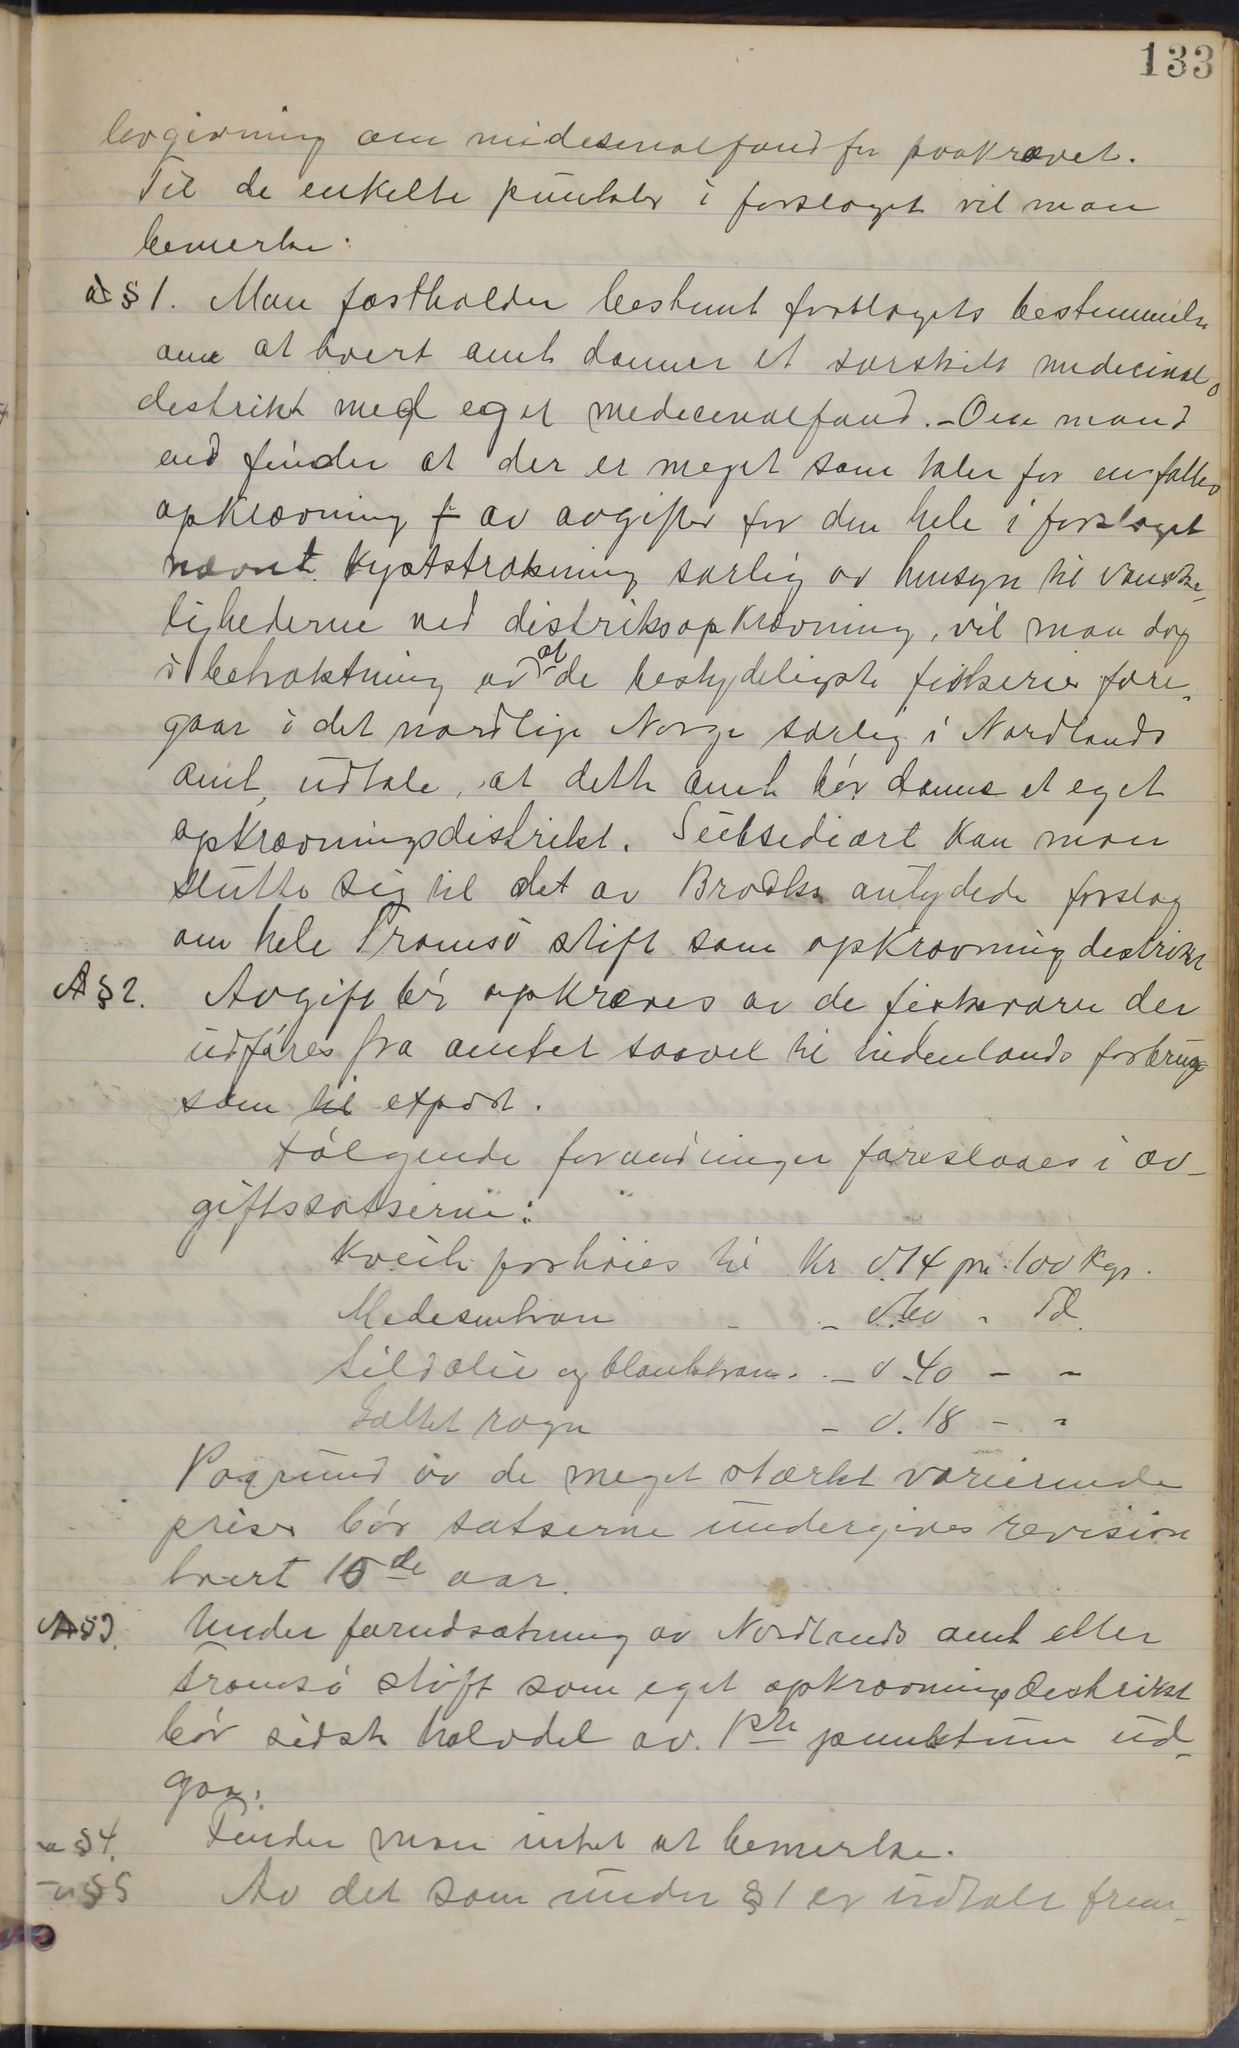 133
lovgivning om midesinalfond for paakrævet.
Til de enkelte punkter i forslaget vil man
bemerke:
ad § 1. Man fastholder bestemt forslagets bestemmelse
om at hvert amt danner et særskilt medicinal-
destrikt med eget medecinalfond. - Om mand
end finder at der er meget som taler for en fælles
opkrævning av avgifter for den hele i forslaget
nævnt kyststrækning særlig av hensyn til vanske-
lighederne ved distriksopkrævning, vil man dog
i betraktning av at de bestydeligste fiskerier fore-
gaar i det nordlige Norge særleg i Nordlands
amt, udtale, at dette amt bør danne et eget
opkrævningsdistrikt. Subsediært kan man
slutte sig til det av Brodtk. antydede forslag
om hele Tromsø stift som opkrævning destrikt
A § 2. Avgift bør opkræves av de fiskevarer der
udføres fra amtet saavel til indenlands forbrug
som til export.
Følgende forandringer foreslaaes i av-
giftssatserne:
Kveite forhøies til Kr 0.14 pr. 100 Kgr.
Medesintran - - 0.60 " Td.
Sildolie og blanktran - - 0.40 - "
Saltet rogn - 0.18 - "
Paagrund av de meget stærkt varierende
priser bør satserne undergives revision
hvert 10de aar.
A § 3. Under forudsætning av Nordlands amt eller
Tromsø stift som eget opkrævnings destrikt
bør sidste halvdel av 1ste punktum ud-
gaa.
" § 4. Finder man intet at bemerke.
- " § 5 Av det som under § 1 er udtalt frem-